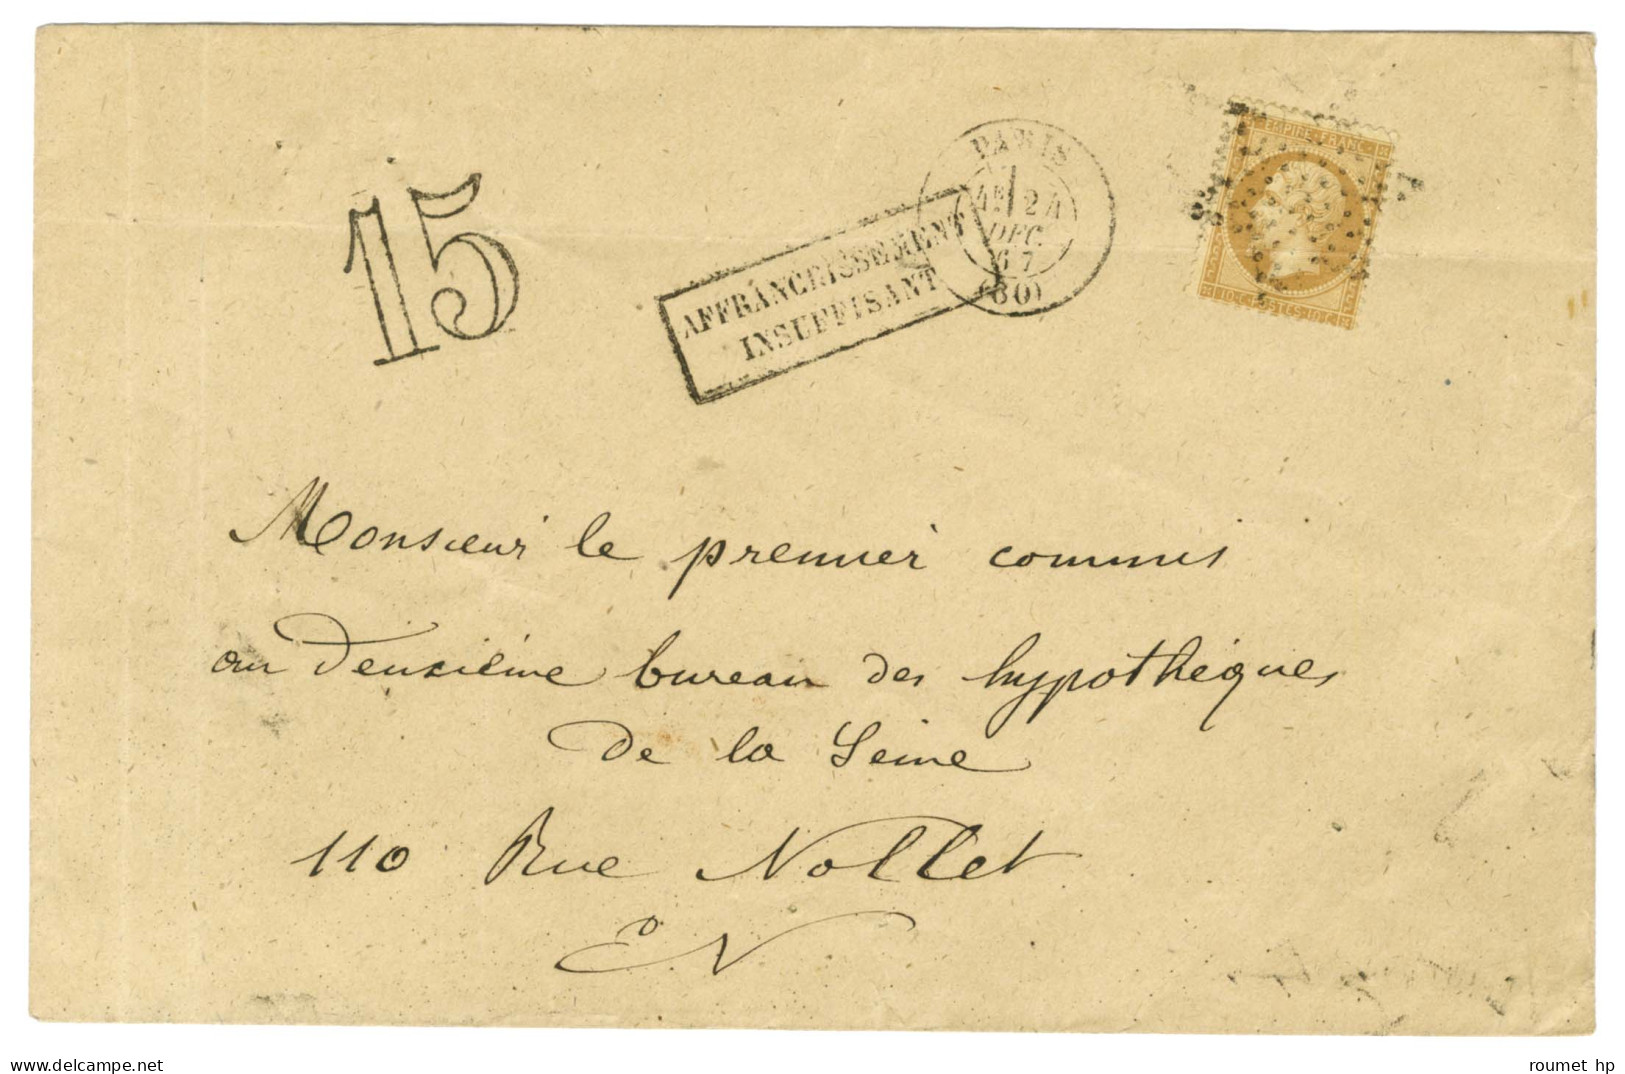 15
AFFRANCHISSEMENT
INSUFFISANT
PARIS
24
DEC.
67
(60)
EMPIRE FRANC
10 C POSTES 10 C
Monsieur le premier commis
au deuxième bureau des hypothèques
de la Seine
110 Rue Nollet
EV
roumet hp